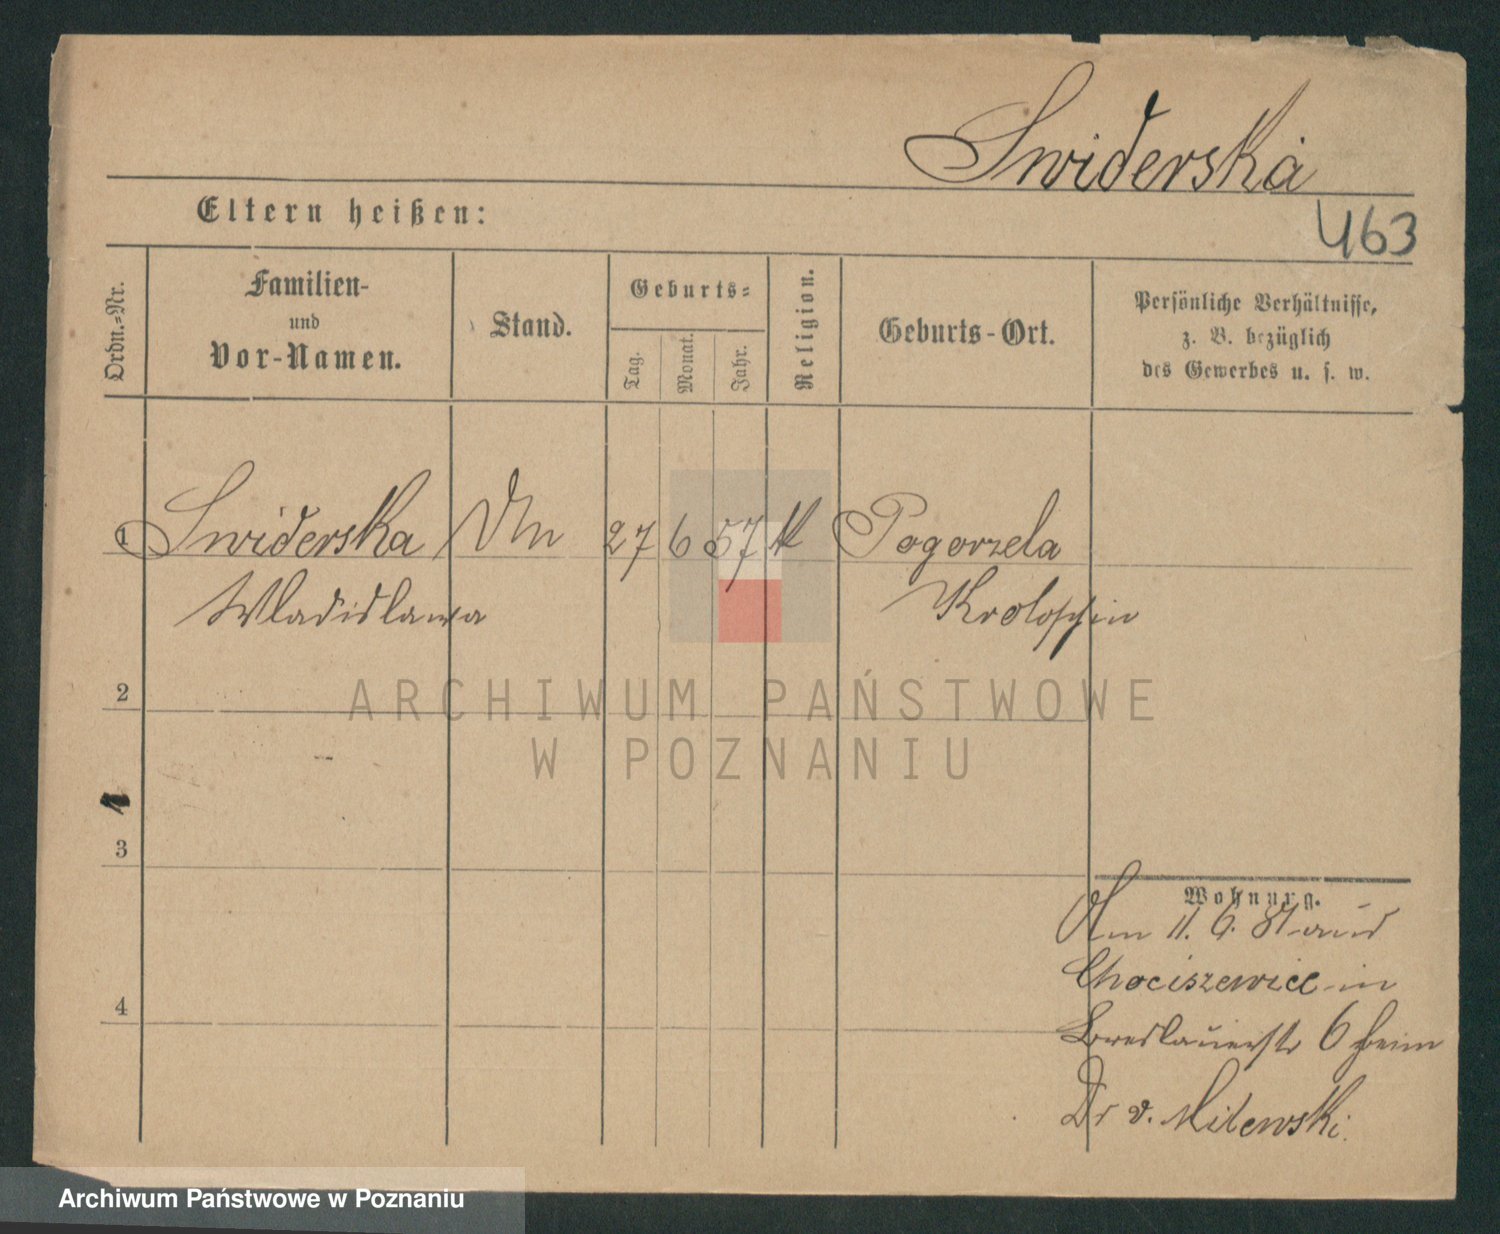 Swiderska
463
Eltern heißen:
Ordn.-Nr.
Familien-
und
Vor-Namen.
Stand.
Geburts-
Tag.
Monat.
Jahr.
Religion.
Geburts-Ort.
Persönliche Verhältnisse,
z. B. bezüglich
des Gewerbes u. s. w.
1 Swiderska 27 6 57 K Pogorzela
Wladislawa Krotoschin
2
3
4
Wohnung.
Am 11. 6. 81 aus
Chociszewice in
Breslauerstr 6 beim
Dr v. Milewski.
ARCHIWUM PAŃSTWOWE
W POZNANIU
Archiwum Państwowe w Poznaniu